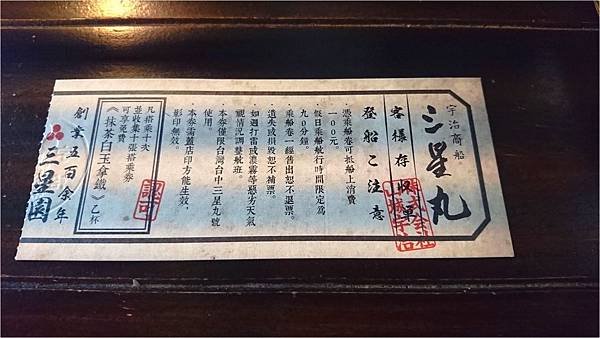 宇治商船
三星丸
客樣存收單
登船ご注意
・憑乘船卷可抵船上消費
一００元。
・假日乘船航行時間限定為
九０分鐘。
・乘船卷一經售出恕不退票。
・遺失或損毀恕不補票。
・如遇打雷或濃霧等惡劣天氣
視情況調整航班。
・本劵僅限台灣台中三星丸號
使用。
・本劵需蓋店印方能生效，
影印無效。
認可
凡搭乘十次
並收集十張搭乘劵
可享免費
《抹茶白玉拿鐵》乙杯
創業五百余年
三星園
株式会社